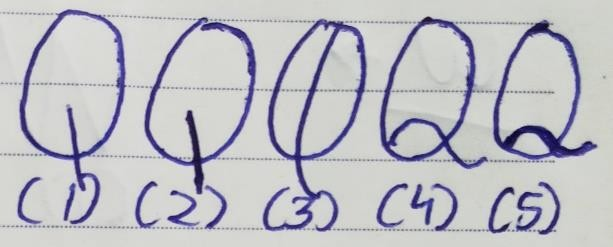 Q Q Q Q Q
(1) (2) (3) (4) (5)